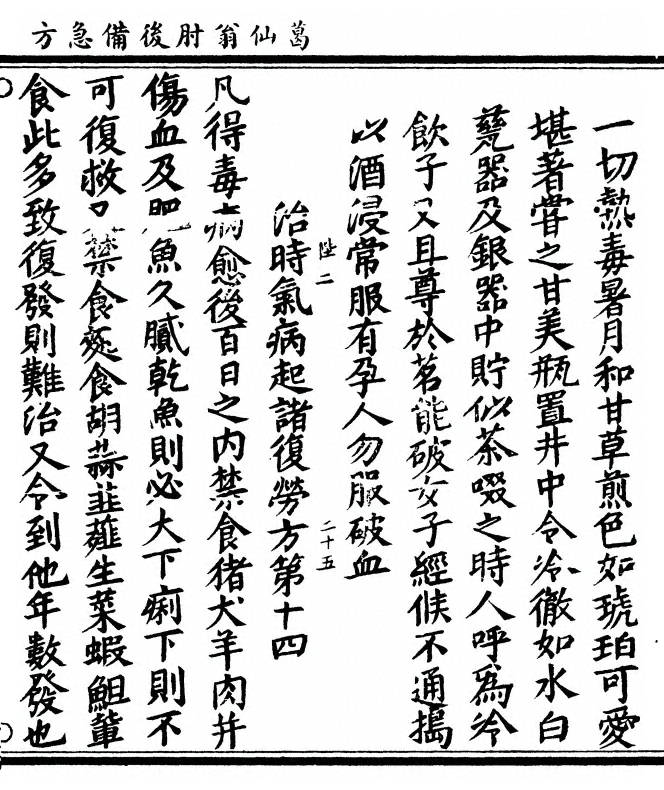 葛仙翁肘後備急方
一切熱毒暑月和甘草煎色如琥珀可愛
堪著嘗之甘美瓶置井中令冷徹如水白
甆器及銀器中貯似茶啜之時人呼爲冷
飲子又且尊於茗能破女子經候不通搗
以酒浸常服有孕人勿服破血
陞二
治時氣病起諸復勞方第十四
二十五
凡得毒病愈後百日之内禁食猪犬羊肉并
傷血及肥魚久膩乾魚則必大下痢下則不
可復救又禁食麪食胡蒜韭薤生菜蝦䱇輩
食此多致復發則難治又令到他年數發也